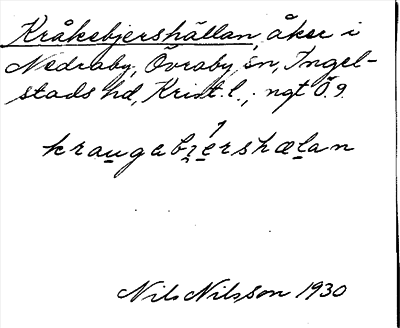 Kråkebjershällan, åker i
Nedraby, Övraby sn, Ingel-
stads hd, Krist. l., ngt Ö.9.
kraugabjershælan
Nils Nilsson 1930